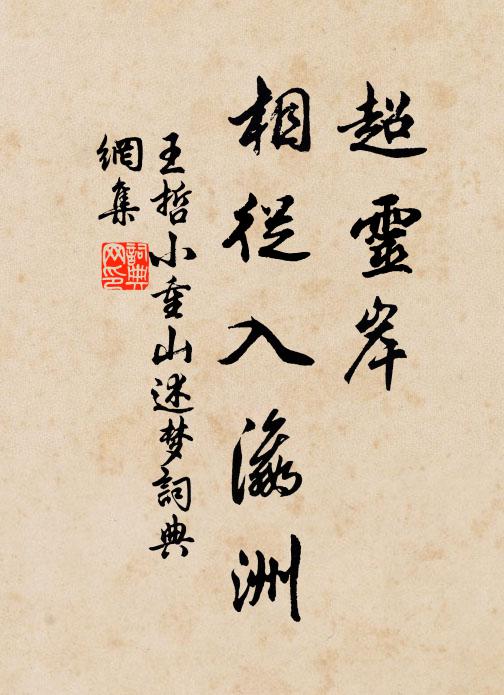 超靈岸
相從入瀛洲
王哲小重山述梦詞典
網集
詞典网印